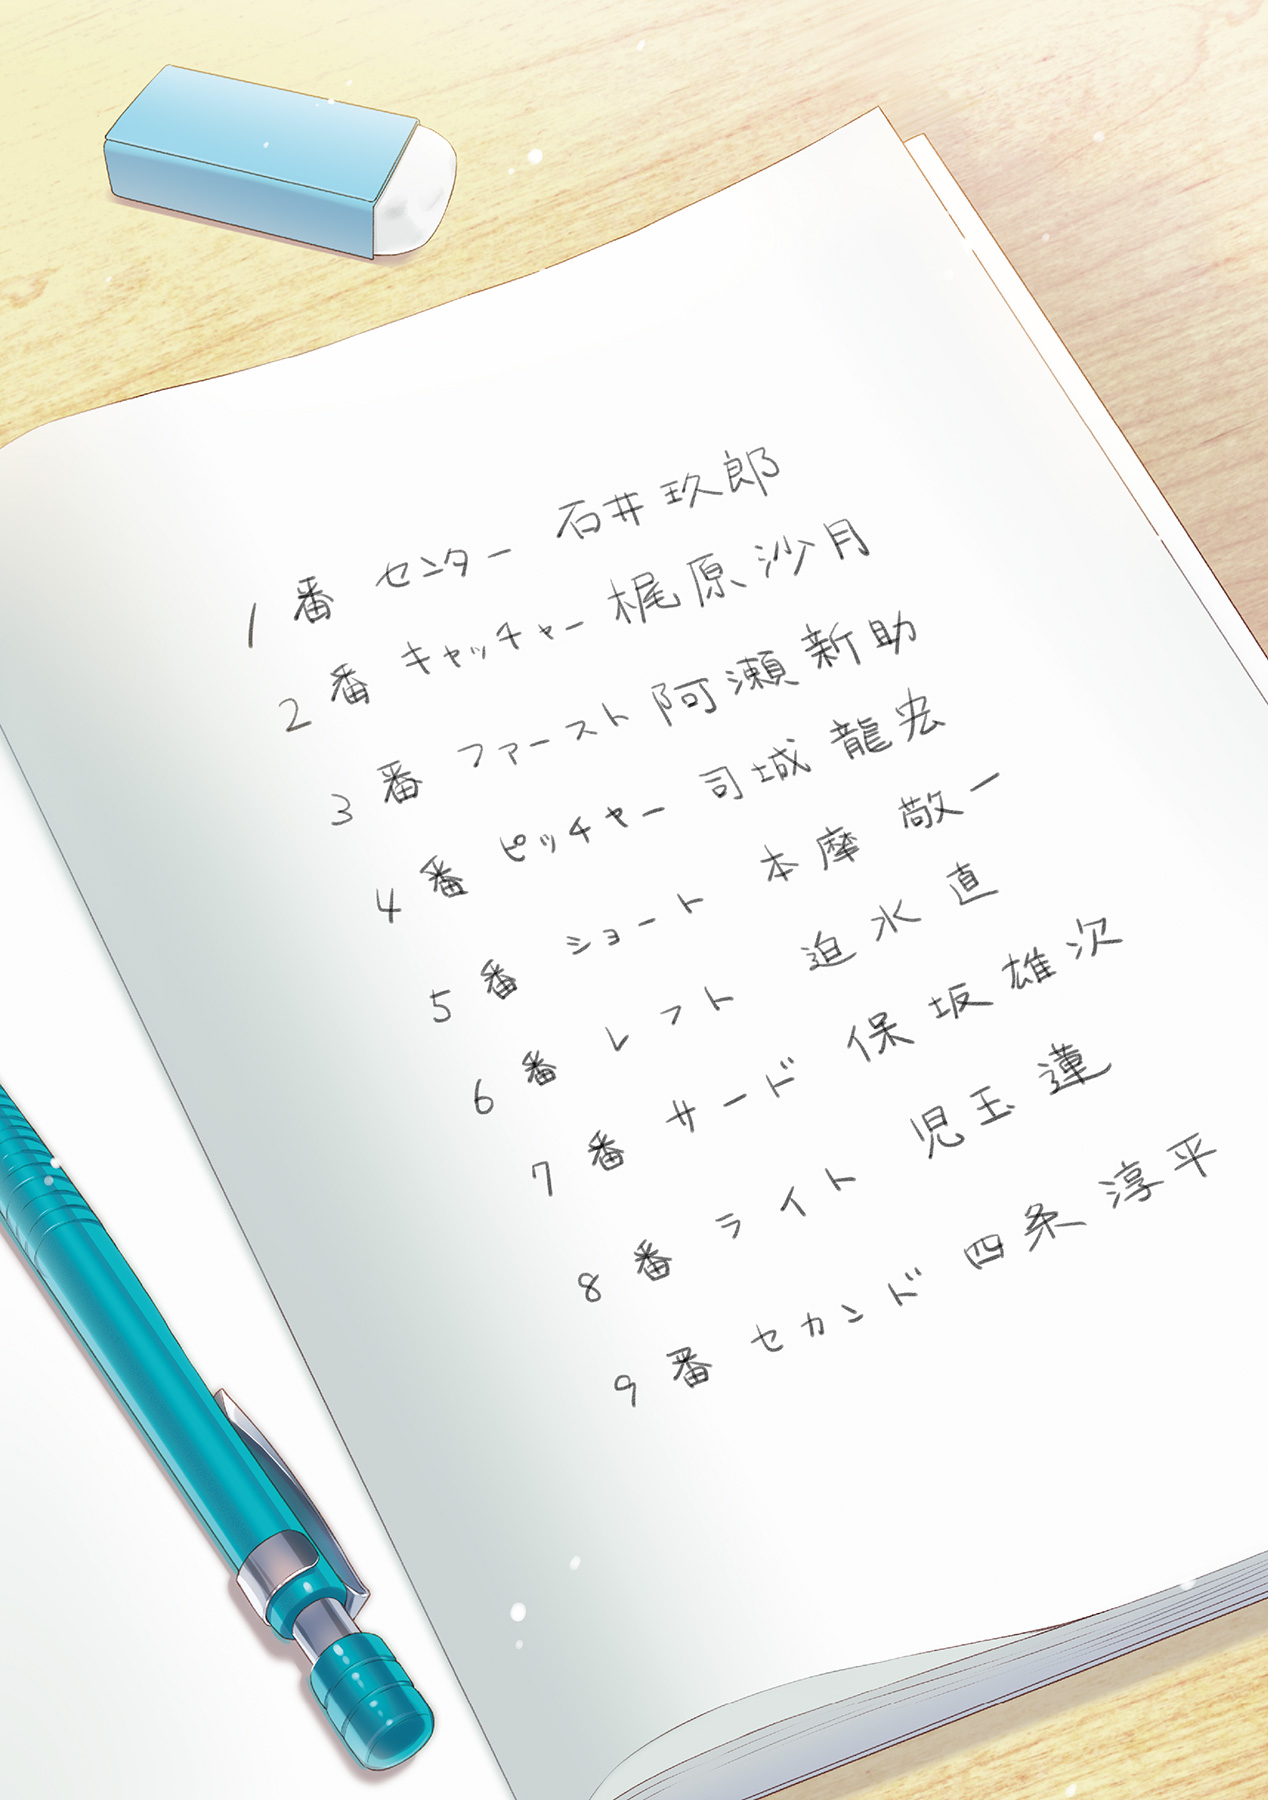 1番 センター 石井玖郎
2番 キャッチャー 梶原沙月
3番 ファースト 阿瀬新助
4番 ピッチャー 司城龍宏
5番 ショート 本摩敬一
6番 レフト 迫水直
7番 サード 保坂雄次
8番 ライト 児玉蓮
9番 セカンド 四条淳平